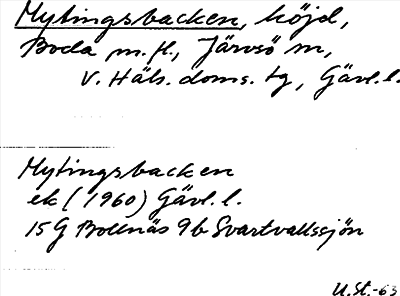 Mytingsbacken, höjd,
Boda m. fl., Järvsö sn,
V. Häls. doms. tg, Gävl. l.
Mytingsbacken
ek (1960) Gävl. l.
15G Bollnäs 9b Svartvallssjön
U.St.-63